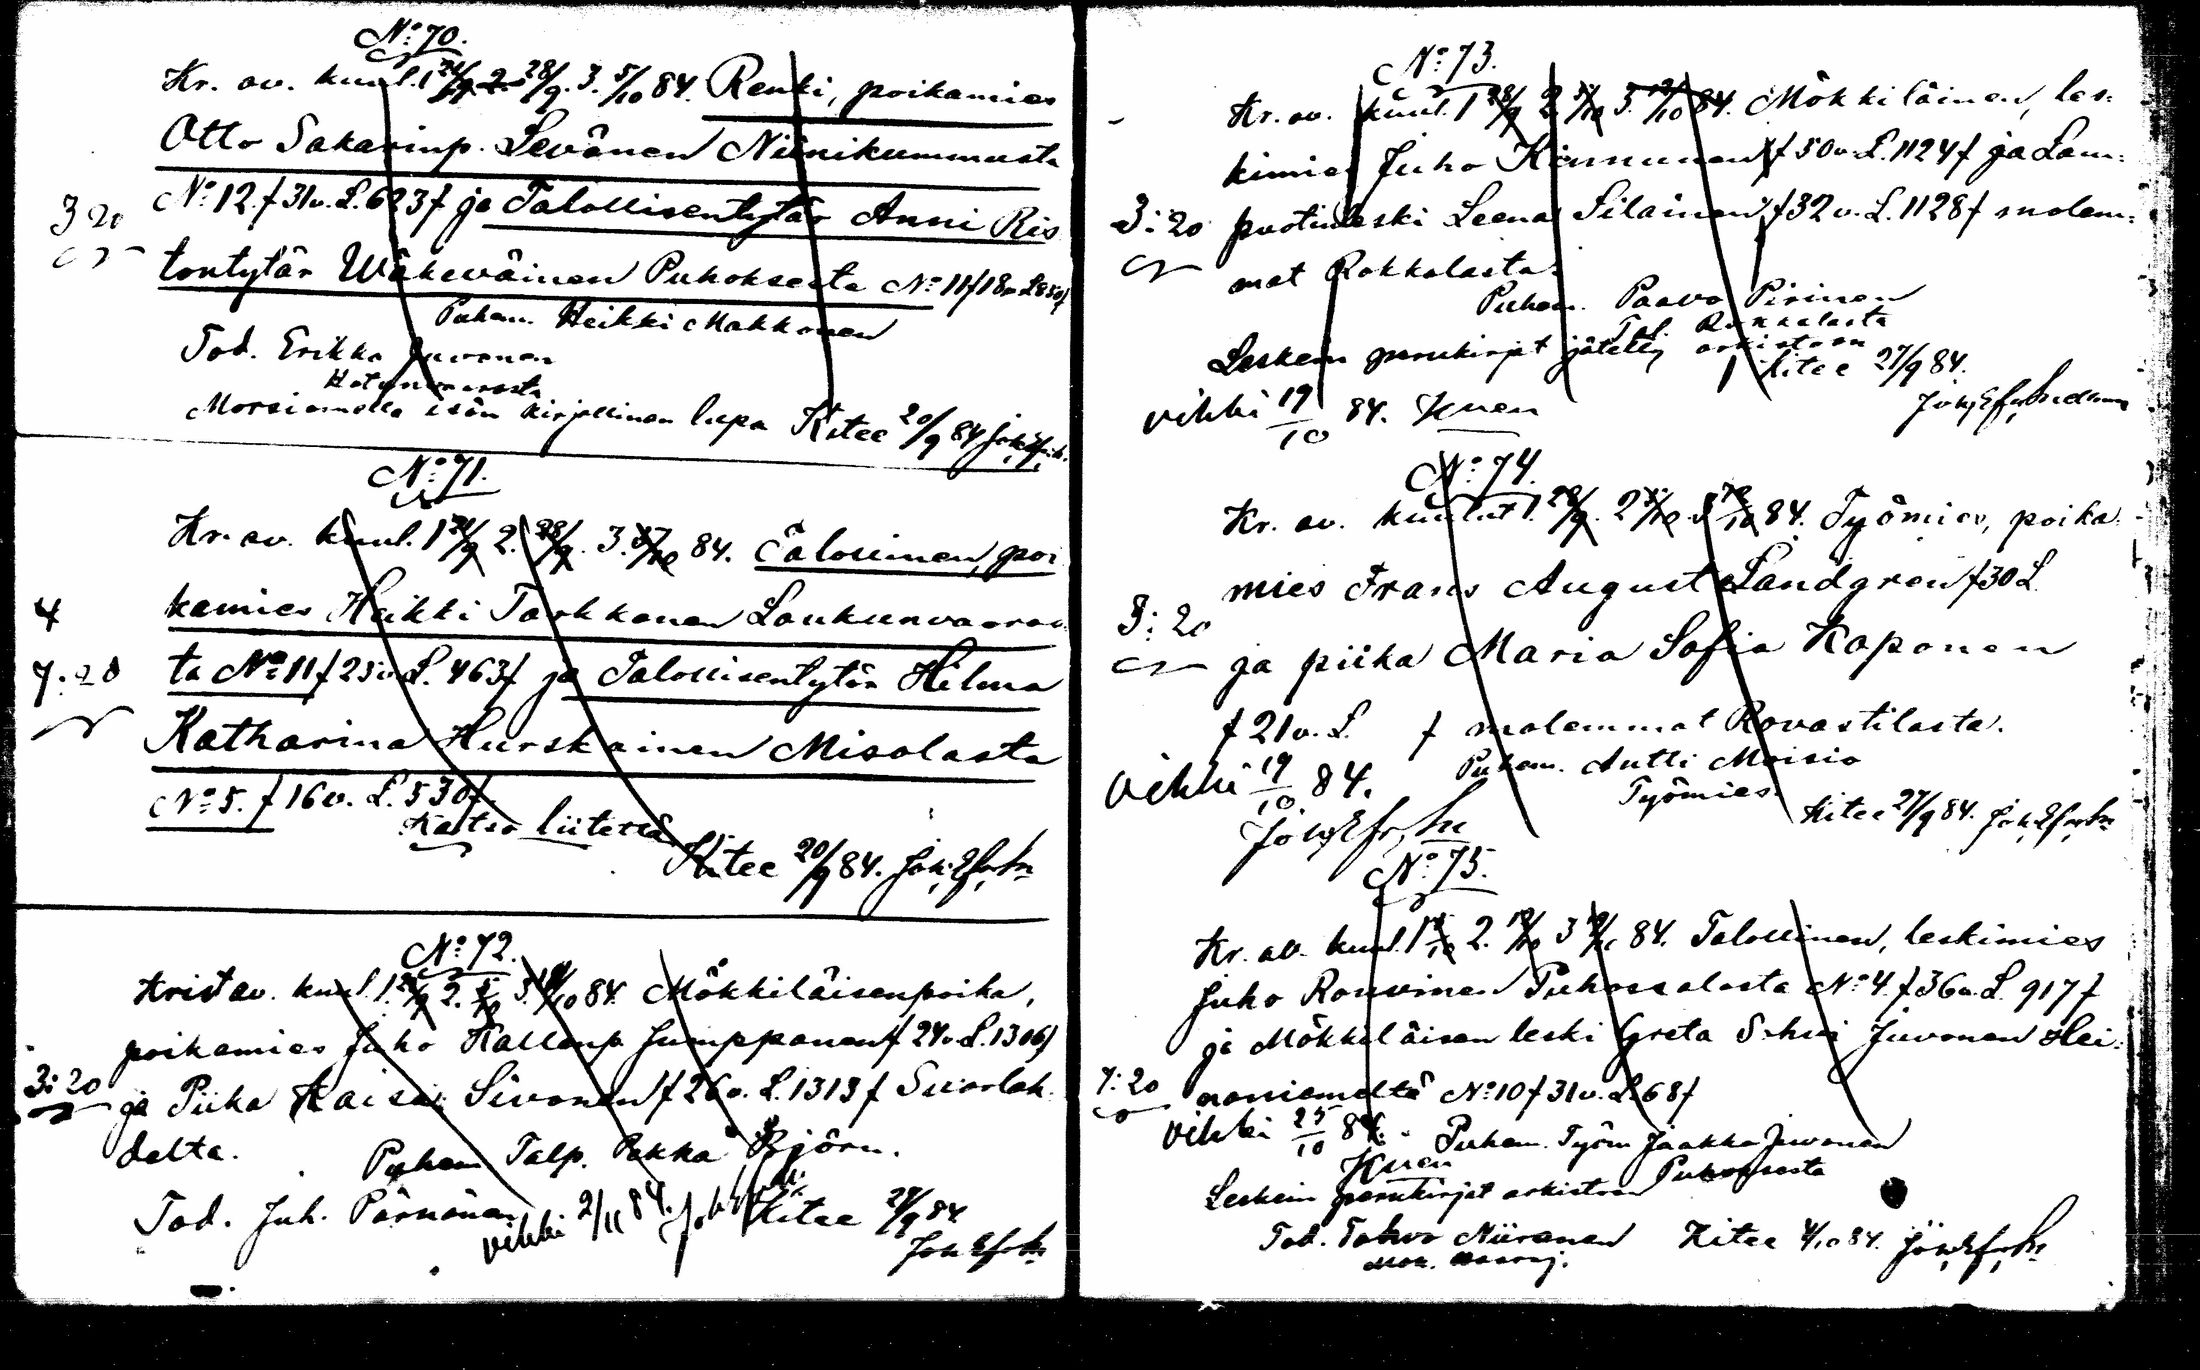 No: 70.
Kr. av. kuul. 1 21/9. 2. 28/9. 3. 5/10 84. Renki, poikamies
Otto Sakarinp. Levänen Niinikummusta
No: 12. f 31v. L. 623 f ja Talollisentytär Anni Ris
3 20
tontytär Wäkeväinen Puhoksesta No 11 f 18v L 850 f
Puhem. Heikki Makkonen
Tod. Erikka Juvonen
Morsiamella isän kirjallinen lupa Kitee 20/9 84
No: 71.
Kr. av. kuul. 1 21/9 2. 28/9. 3. 5/10 84. Talollinen, poi
kamies Heikki Tarkkanen Loukunvaaras
4
ta No: 11 f 25v. L. 463 f ja Talollisentytär Hilma
7:20
Katharina Hurskainen Misolasta
No: 5. f 16v. L. 530 f.
Katso liitettä
Kitee 20/9 84.
No: 72.
Krist av. kuul. 1. 2. 5/10 3. 84. Mökkiläisenpoika,
poikamies Juho Kallenp. Jumppanen f 24v. L. 1306 f
3:20
ja Piika Kaisa Sivonen f 26v. L. 1313 f Suorlah
delta.
Puhem Talp. Pekka Björn.
Tod. Juh. Pärnänen
vihki 2/11 84.
Kitee 84
No: 73.
Kr. av. kuul. 1 28/9 2. 5/10 3. 12/10 84. Mökkiläinen, les:
kimies Juho Kinnunen f 50v. L. 1124 f ja Lam:
3:20
puotinleski Leena Silainen f 32v. L. 1128 f molem:
mat Rokkalasta.
Puhem. Paavo Pirinen
Tal. Rokkalasta
Leskein perukirjat jätetty arkistoon
Kitee 27/9 84.
vihki 19/10 84.
No: 74.
Kr. av. kuulut 1. 28/9. 2 5/10 3 12/10 84. Työmies, poika
mies Frans August Landgren f 30 L.
3:20
ja piika Maria Sofia Kaponen
f 21v. L. f molemmat Rovastilasta.
Puhem. Antti Moisio
Työmies.
vihki 19/10 84.
Kitee 27/9 84.
No: 75.
Kr. av. kuul. 1 5/10 2. 12/10 3 19/10 84. Talollinen, leskimies
Juho Rouvinen Puhossalosta No: 4. f 36v. L. 917 f
ja Mökkiläisen leski Greta Juvonen Hei:
7:20
noniemeltä No: 10 f 31v. L. 68 f
vihki 25/10 84.
Puhem. Työm Jaakko Juvonen
Puhoksesta
Leskein perukirjat arkistoon
Tod. Tahvo Niiranen
Kitee 4/10 84.